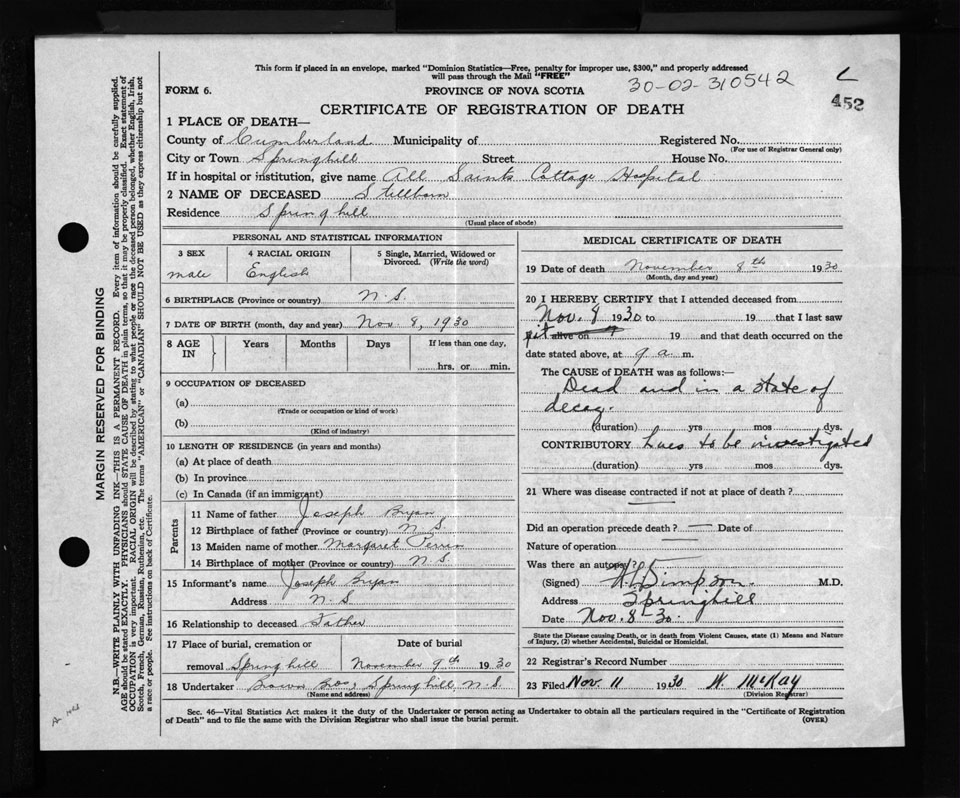 This form if placed in an envelope, marked "Dominion Statistics—Free, penalty for improper use, $300," and properly addressed
will pass through the Mail "FREE"
30-02-310542
L
452
FORM 6.
PROVINCE OF NOVA SCOTIA
CERTIFICATE OF REGISTRATION OF DEATH
1 PLACE OF DEATH—
County of Cumberland Municipality of Registered No.
(For use of Registrar General only)
City or Town Springhill Street House No.
If in hospital or institution, give name All Saints Cottage Hospital
2 NAME OF DECEASED Stillborn
Residence Springhill
(Usual place of abode)
PERSONAL AND STATISTICAL INFORMATION
3 SEX 4 RACIAL ORIGIN 5 Single, Married, Widowed or
Divorced. (Write the word)
male English
6 BIRTHPLACE (Province or country) N.S.
7 DATE OF BIRTH (month, day and year) Nov. 8, 1930
8 AGE IN Years Months Days If less than one day,
hrs. or min.
9 OCCUPATION OF DECEASED
(a)
(Trade or occupation or kind of work)
(b)
(Kind of industry)
10 LENGTH OF RESIDENCE (in years and months)
(a) At place of death
(b) In province
(c) In Canada (if an immigrant)
Parents
11 Name of father Joseph Bryan
12 Birthplace of father (Province or country) N S.
13 Maiden name of mother Margaret
14 Birthplace of mother (Province or country) N.S.
15 Informant's name Joseph Bryan
Address N.S
16 Relationship to deceased Father
17 Place of burial, cremation or Date of burial
removal Springhill November 9th 1930
18 Undertaker Brown Bros, Springhill, N.S.
(Name and address)
MEDICAL CERTIFICATE OF DEATH
19 Date of death November 8th 1930
(Month, day and year)
20 I HEREBY CERTIFY that I attended deceased from
Nov. 8 1930 to 19 that I last saw
alive on 19 and that death occurred on the
date stated above, at 9 a. m.
The CAUSE OF DEATH was as follows:—
Dead and in a state of
decay.
(duration) yrs mos dys.
CONTRIBUTORY Lues to be investigated
(duration) yrs mos dys.
21 Where was disease contracted if not at place of death?
Did an operation precede death? — Date of
Nature of operation
Was there an autopsy?
(Signed) Simpson M.D.
Address Springhill
Date Nov. 8-30.
State the Disease causing Death, or in death from Violent Causes, state (1) Means and Nature
of Injury, (2) whether Accidental, Suicidal or Homicidal.
22 Registrar's Record Number
23 Filed Nov. 11 1930 N. McKay
(Division Registrar)
Sec. 46—Vital Statistics Act makes it the duty of the Undertaker or person acting as Undertaker to obtain all the particulars required in the "Certificate of Registration
of Death" and to file the same with the Division Registrar who shall issue the burial permit.
(OVER)
MARGIN RESERVED FOR BINDING
N.B.—WRITE PLAINLY WITH UNFADING INK—THIS IS A PERMANENT RECORD. Every item of information should be carefully supplied.
AGE should be stated EXACTLY. PHYSICIANS should STATE CAUSE OF DEATH in plain terms, so that it may be properly classified. Exact statement of
OCCUPATION is very important. RACIAL ORIGIN will be described by stating to what people or race the deceased person belonged, whether English, Irish,
Scotch, French, German, Russian, Ruthenian, etc. The terms "AMERICAN" or "CANADIAN" SHOULD NOT BE USED as they express citizenship but not
a race or people. See instructions on back of Certificate.